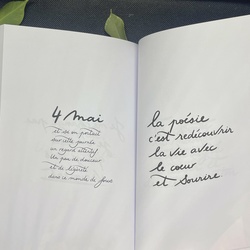 4 mai
et si on portait
sur cette journée
un regard attentif
Un peu de douceur
et de légèreté
dans ce monde de fous
la poésie
c'est redécouvrir
la vie avec
le cœur
et sourire